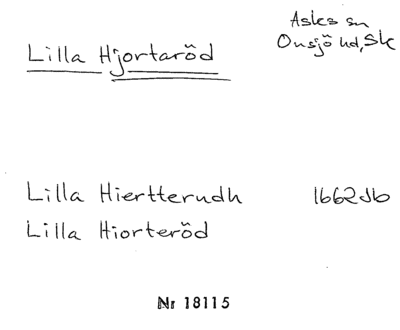 Lilla Hjortaröd
Asks sn
Onsjö hd, Sk
Lilla Hiertterudh 1662 Jb
Lilla Hiorteröd
Nr 18115